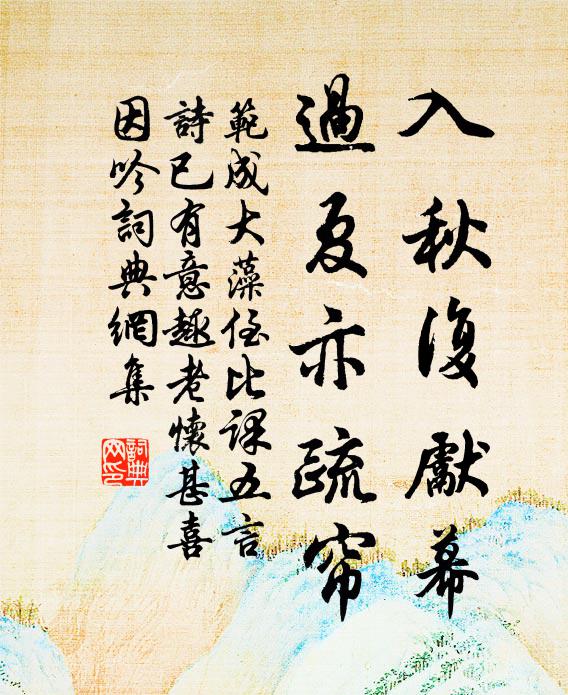 入秋復獻幕
過夏亦疏帘
範成大藻侄比課五言
詩已有意趣老懷甚喜
因吟詞典網集
詞典網印